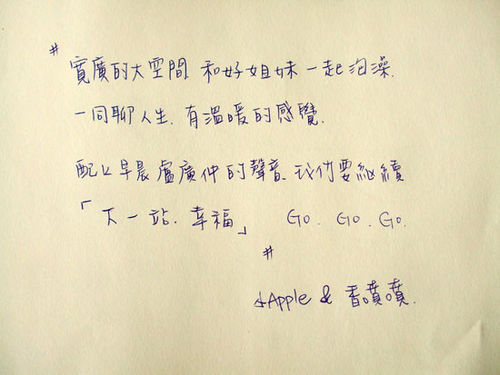 #
寬廣的大空間 和好姐妹一起泡澡.
一同聊人生. 有溫暖的感覺.
配上早晨盧廣仲的聲音. 我們要繼續
「下一站. 幸福」 Go. Go. Go.
#
小Apple & 香噴噴.